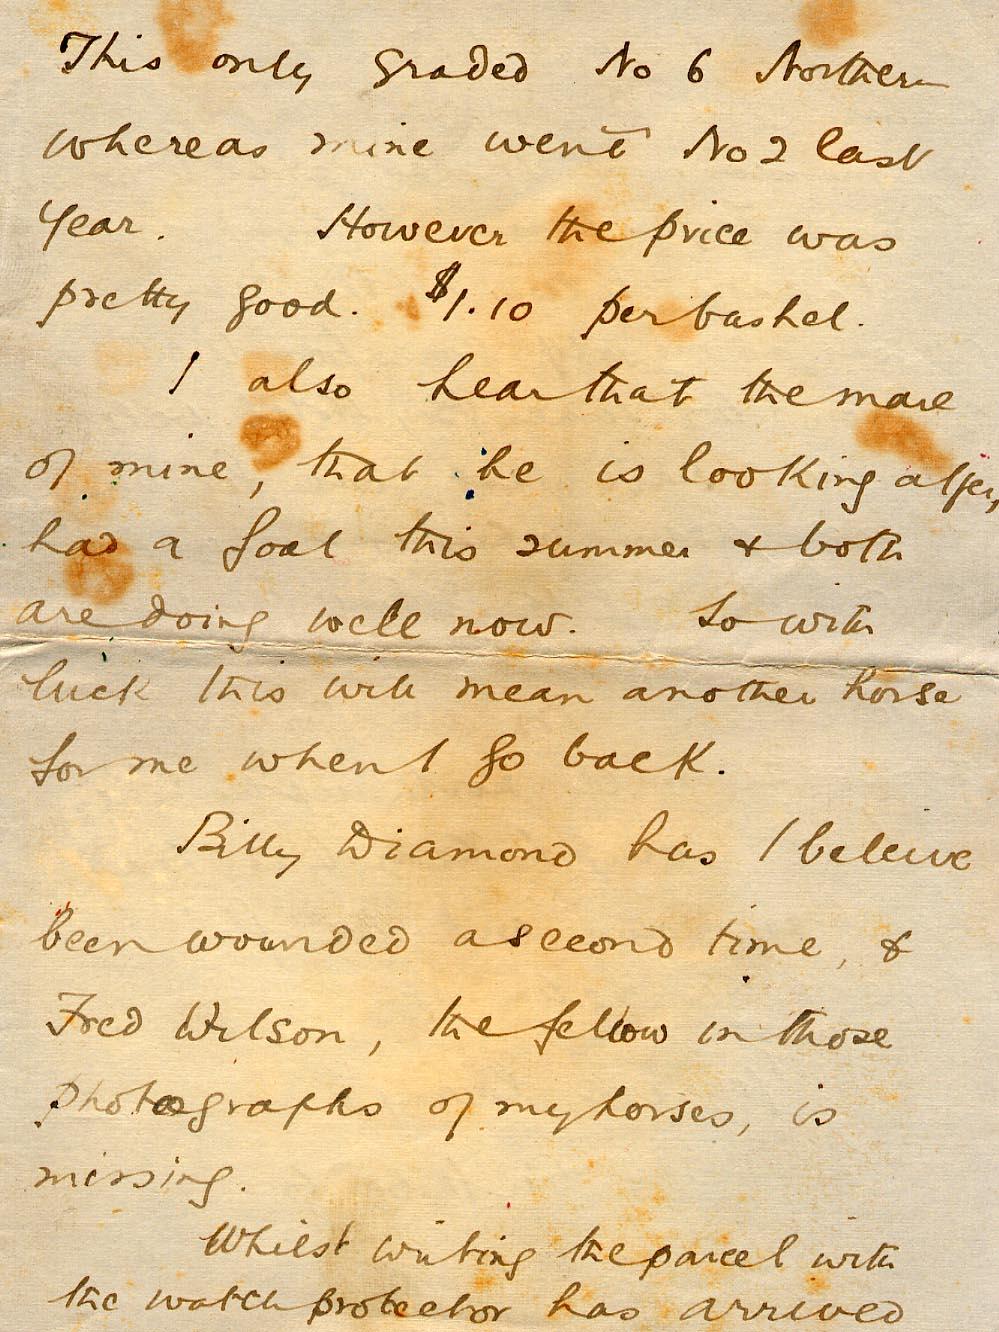 This only graded No 6 Northern
whereas mine went No 2 last
year. However the price was
pretty good. $1.10 per bushel.
I also hear that the mare
of mine, that he is looking after,
had a foal this summer & both
are doing well now. So with
luck this will mean another horse
for me when I go back.
Billy Diamond has I beleive
been wounded a second time, &
Fred Wilson, the fellow in those
photographs of my horses, is
missing.
Whilst writing the parcel with
the watch protector has arrived